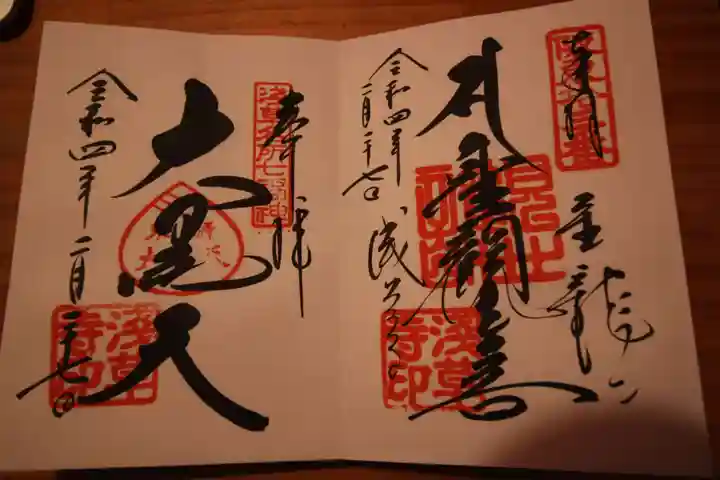 奉拝
坂東十三番
聖観世音
金龍山
浅草寺
令和四年
二月二十七日
浅草寺印
奉拝
浅草名所七福神
大黒天
令和四年二月二十七日
浅草寺印